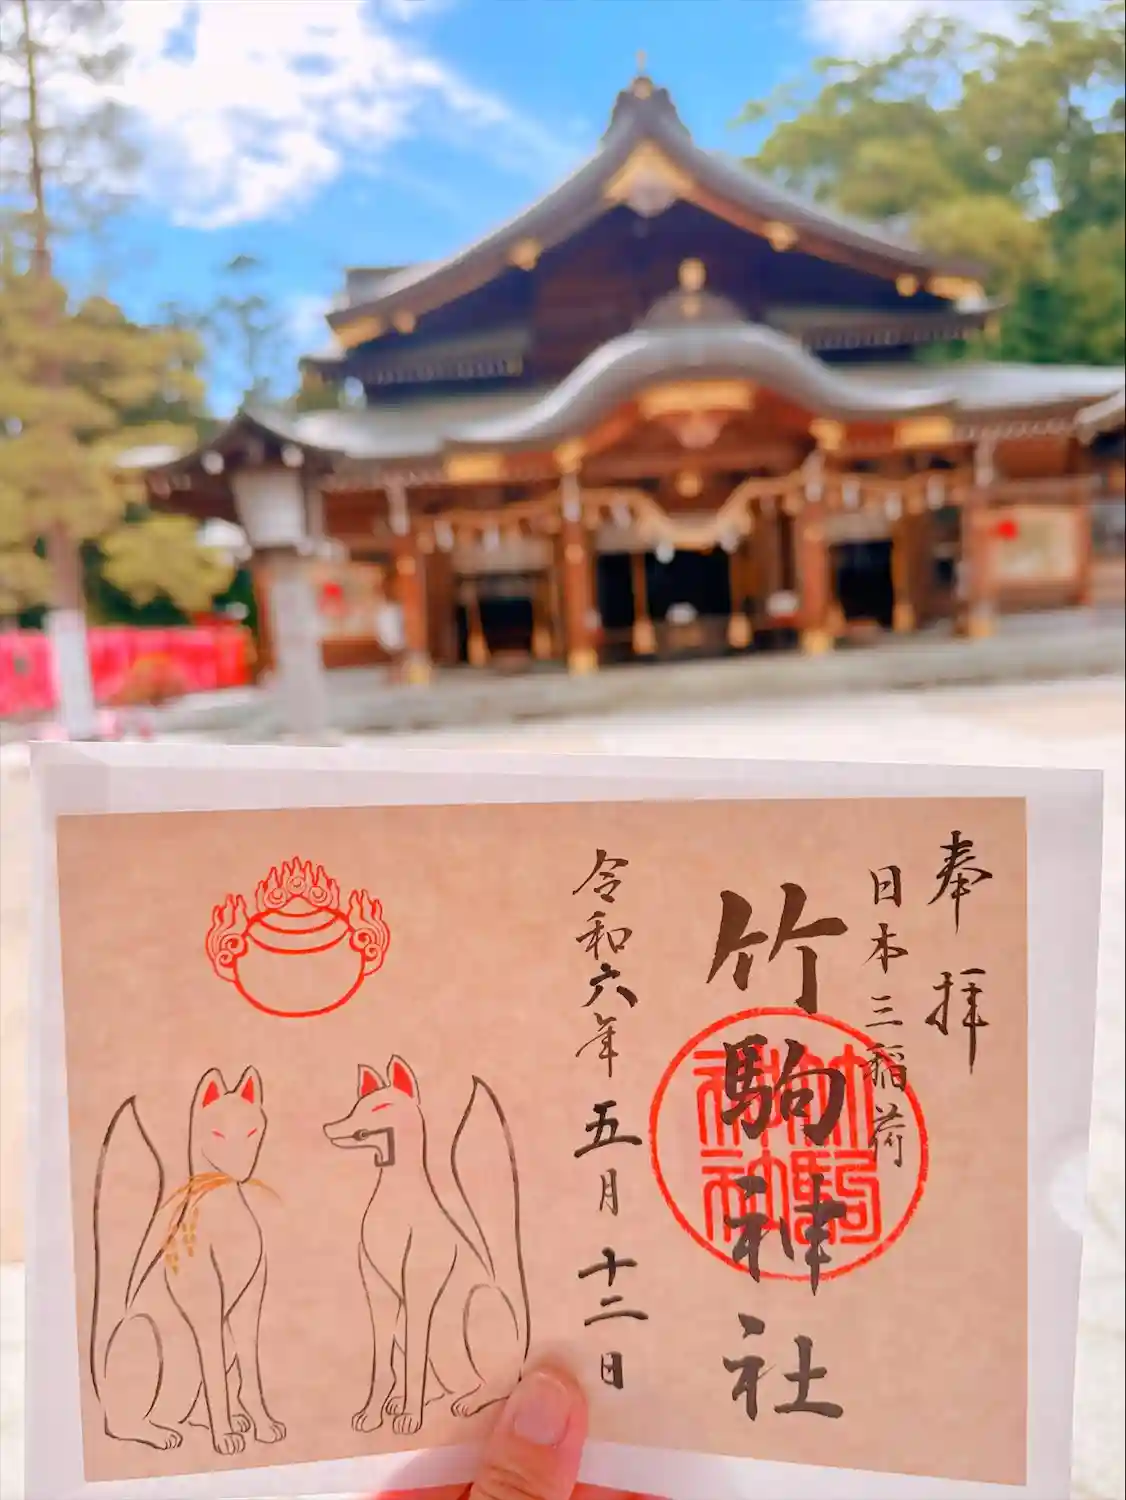 奉拝
日本三稲荷
竹駒神社
竹駒神社
令和六年五月十二日